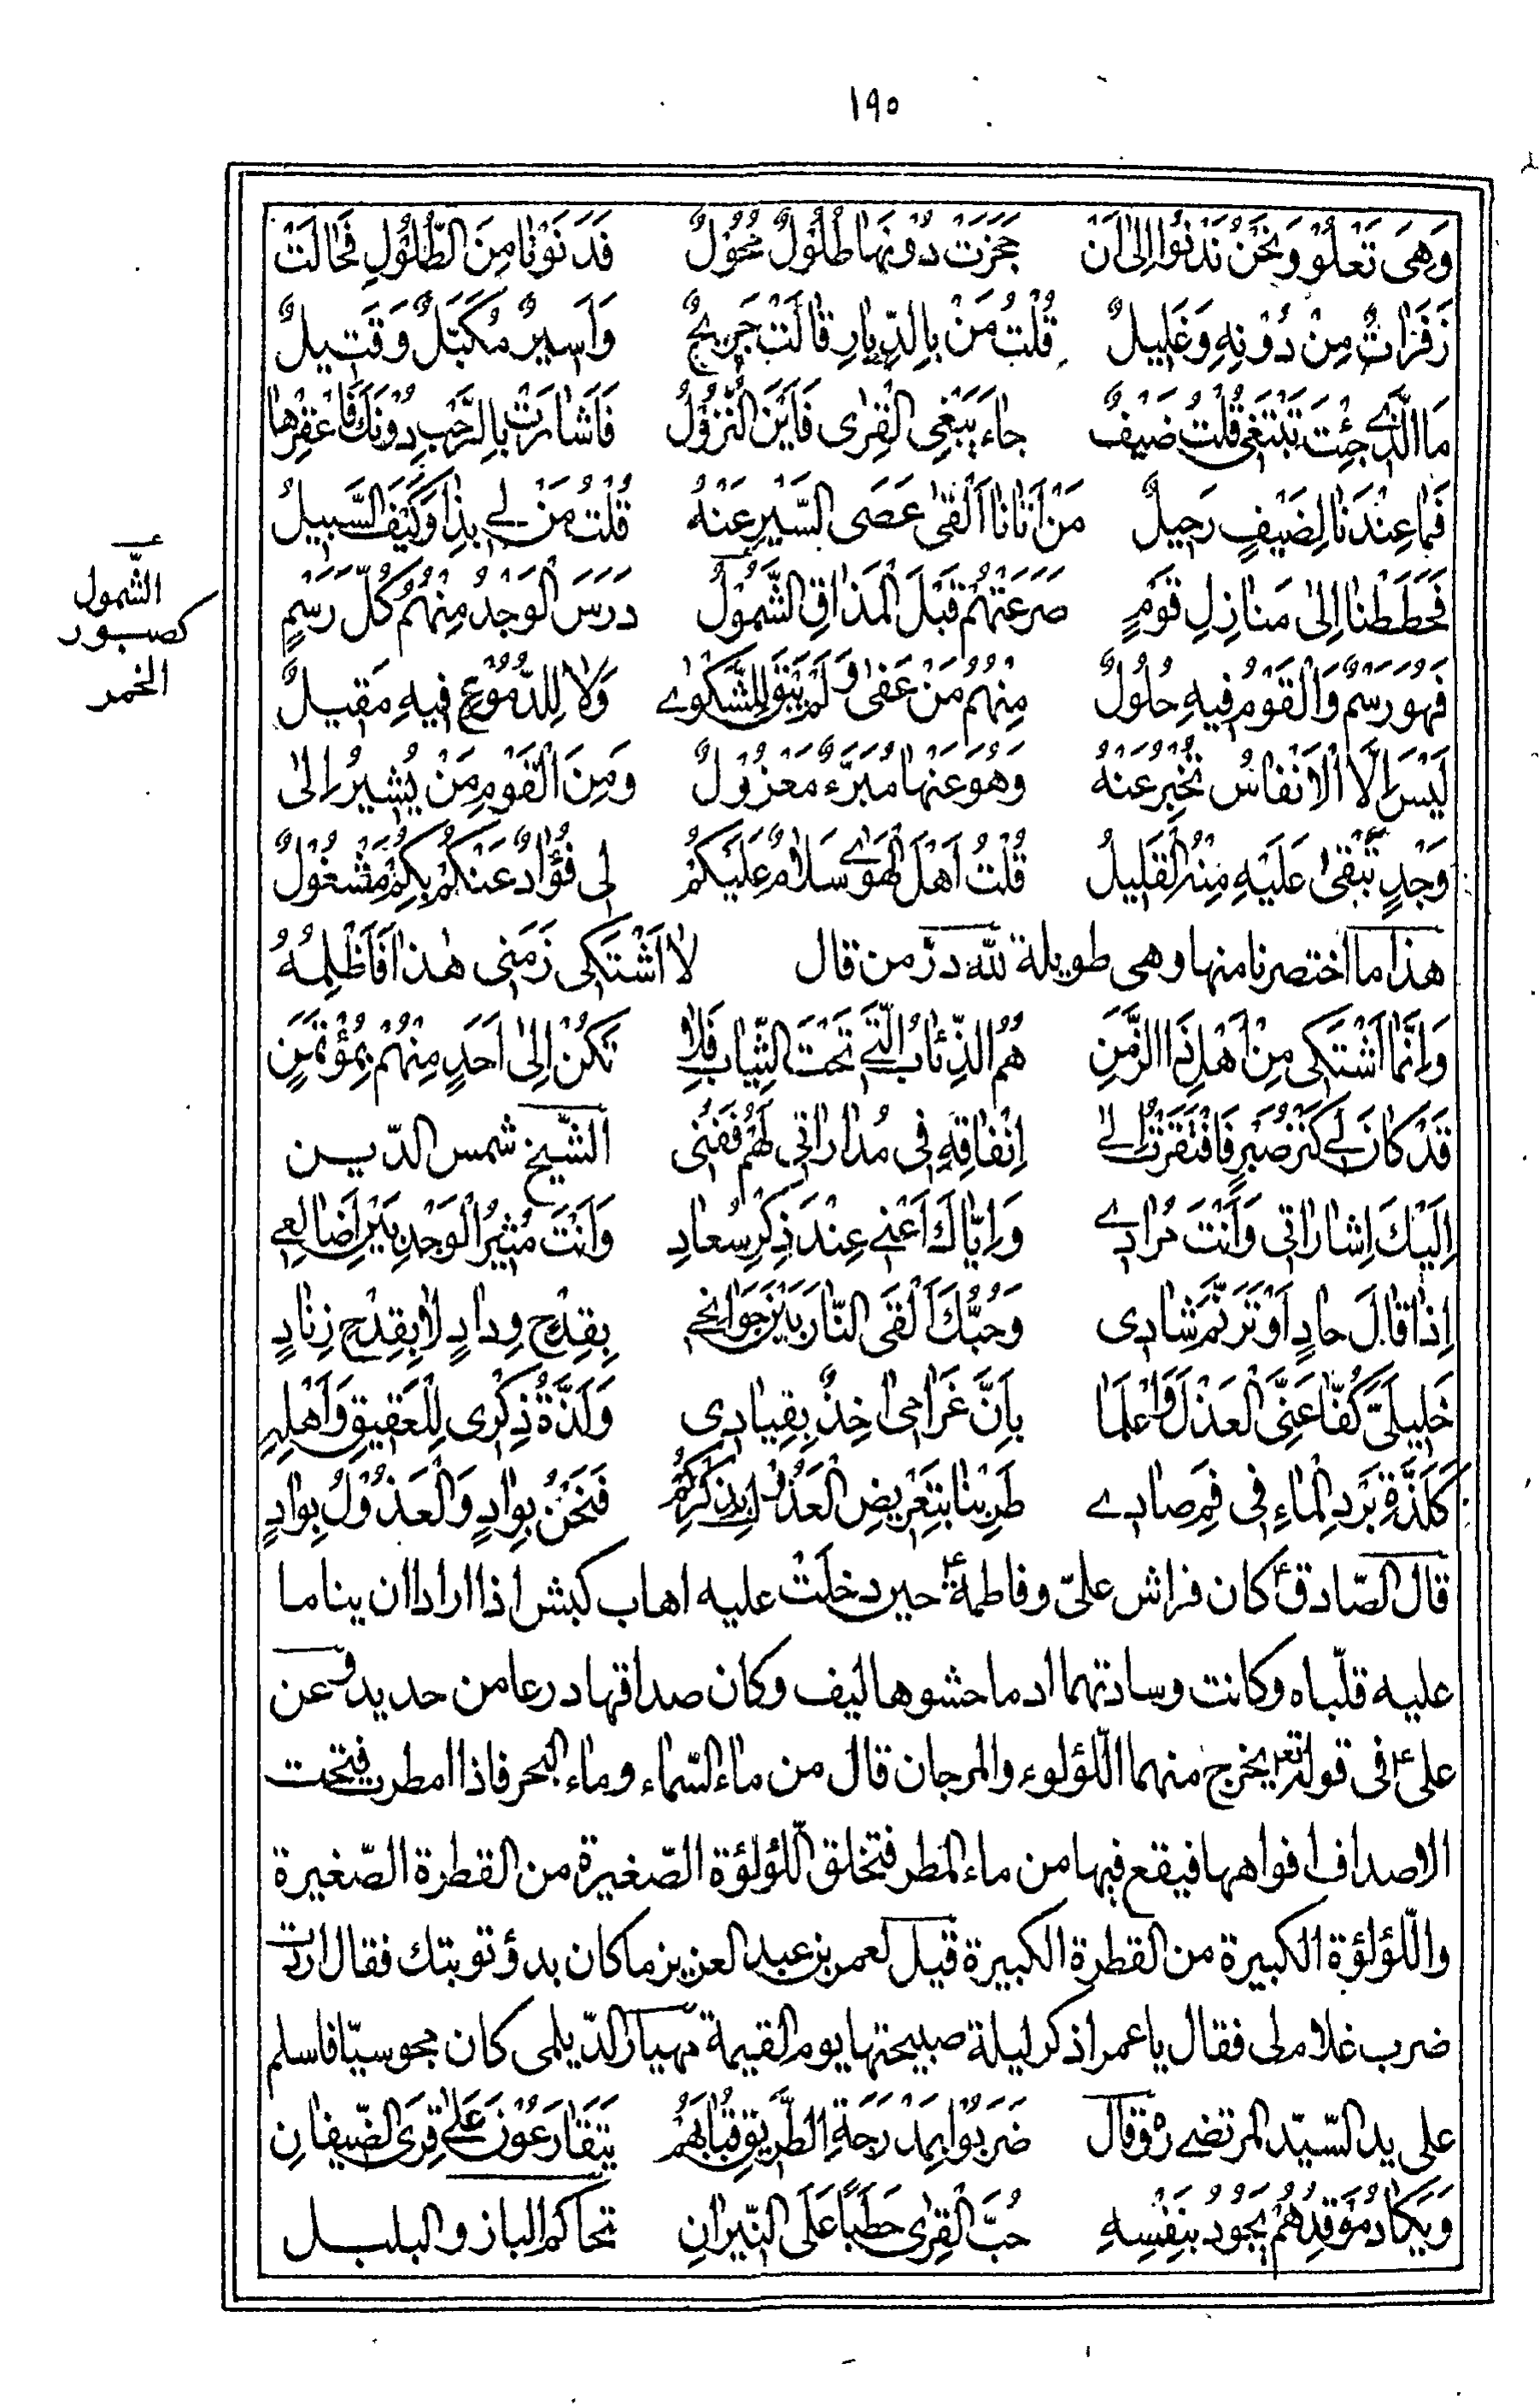 ١٩٥
وَهِيَ تَعْلُوْ وَنَحْنُ نَدْنُوْا اِلىٰ اَنْ حَجَزَتْ دُوْنَهَا طُلُوْلٌ مُحُوْلٌ فَدَنَوْنَا مِنَ الطُّلُوْلِ فَحَالَتْ
زَفَرَاتٌ مِنْ دُوْنِهِ وَغَلِيلٌ قُلْتُ مَنْ بِالدِّيَارِ قَالَتْ جَرِيحٌ وَاَسِيرٌ مُكَبَّلٌ وَقَتِيلٌ
مَا الَّذِي جِئْتَ تَبْتَغِي قُلْتُ ضَيْفٌ جَاءَ يَبْغِي الْقِرٰى فَاَيْنَ النُّزُوْلُ فَاَشَارَتْ بِالرَّحْبِ دُوْنَكَ فَاعْقِرْهَا
فَمَا عِنْدَنَا لِضَيْفٍ رَحِيلٌ مَنْ اَتَانَا اَلْقٰى عَصَى السَّيْرِ عَنْهُ قُلْتُ مَنْ لِي بِذَا وَكَيْفَ السَّبِيلُ
فَحَطَطْنَا اِلىٰ مَنَازِلِ قَوْمٍ صَرَعَتْهُمْ قَبْلَ الْمَذَاقِ الشَّمُوْلُ دَرَسَ الْوَجْدُ مِنْهُمُ كُلَّ رَسْمٍ
الشَّمول
كصبور
الخمر
فَهُوَ رَسْمٌ وَالْقَوْمُ فِيهِ حُلُولٌ مِنْهُمُ مَنْ عَفٰى وَلَمْ يَبْقَ لِلشَّكْوٰى وَلَا لِلدُّمُوْعِ فِيهِ مَقِيلٌ
لَيْسَ اِلَّا الْاَنْفَاسُ تُخْبِرُ عَنْهُ وَهُوَ عَنْهَا مُبَرَّءٌ مَعْزُوْلٌ وَمِنَ الْقَوْمِ مَنْ يُشِيرُ اِلىٰ
وَجْدٍ تَبَقّٰى عَلَيْهِ مِنْهُ الْقَلِيلُ قُلْتُ اَهْلَ الْهَوٰى سَلَامٌ عَلَيْكُمْ لِي فُؤَادٌ عَنْكُمْ بِكُمْ مَشْغُوْلٌ
هذا ما اختصرنا منها وهى طويلة لله درّ من قال لَا اَشْتَكِي زَمَنِي هٰذَا فَاَظْلِمُهُ
وَاِنَّمَا اَشْتَكِي مِنْ اَهْلِ ذَا الزَّمَنِ هُمُ الذِّئَابُ الَّتِي تَحْتَ الثِّيَابِ فَلَا تَكُنْ اِلىٰ اَحَدٍ مِنْهُمْ بِمُؤْتَمَنٍ
قَدْ كَانَ لِي كَنْزُ صَبْرٍ فَافْتَقَرْتُ اِلىٰ اِنْفَاقِهِ فِي مُدَارَاتِي لَهُمْ فَفَنِيَ الشّيخ شمس الدّيـن
اِلَيْكَ اِشَارَاتِي وَاَنْتَ مُرَادِي وَاِيَّاكَ اَعْنِي عِنْدَ ذِكْرِ سُعَادِ وَاَنْتَ مُثِيرُ الْوَجْدِ بَيْنَ اَضَالِعِي
اِذَا قَالَ حَادٍ اَوْ تَرَنَّمَ شَادِي وَحُبُّكَ اَلْقَى النَّارَ بَيْنَ جَوَانِحِي بِقِدْحِ وِدَادٍ لَا بِقِدْحِ زِنَادٍ
خَلِيلَيَّ كُفَّا عَنِّي الْعَذْلَ وَاعْلَمَا بِاَنَّ غَرَامِي اٰخِذٌ بِقِيَادِي وَلَذَّةُ ذِكْرِي لِلْعَقِيقِ وَاَهْلِهِ
كَلَذَّةِ بَرْدِ الْمَاءِ فِي فَمِ صَادِي طَرِبْنَا بِتَعْرِيضِ الْعَذُولِ بِذِكْرِكُمْ فَنَحْنُ بِوَادٍ وَالْعَذُوْلُ بِوَادٍ
قال الصّادق ع كان فراش علىّ وفاطمة ع حين دخلت عليه اهاب كبش اذا ارادا ان يناما
عليه قلّباه وكانت وسادتهما ادما حشوها ليف وكان صداقها درعا من حديد وعن
على ع فى قوله تعالى يخرج منهما اللّؤلؤ والمرجان قال من ماء السّماء وماء البحر فاذا امطرت فتحت
الاصداف افواهها فيقع فيها من ماء المطر فتخلق اللّؤلؤة الصّغيرة من القطرة الصّغيرة
واللّؤلؤة الكبيرة من القطرة الكبيرة قيل لعمر بن عبد العزيز ما كان بدؤ توبتك فقال اردت
ضرب غلام لى فقال يا عمر اذكر ليلة صبيحتها يوم القيمة مهيار الدّيلمى كان مجوسيّا فاسلم
على يد السّيّد المرتضى ره وقال ضَرَبُوْا بِمَدْرَجَةِ الطَّرِيقِ قِبَابَهُمْ يَتَقَارَعُوْنَ عَلىٰ قِرَى الضِّيفَانِ
وَيَكَادُ مُوْقِدُهُمْ يَجُوْدُ بِنَفْسِهِ حُبَّ الْقِرٰى حَطَبًا عَلَى النِّيرَانِ تحاكم الباز والبلبـل